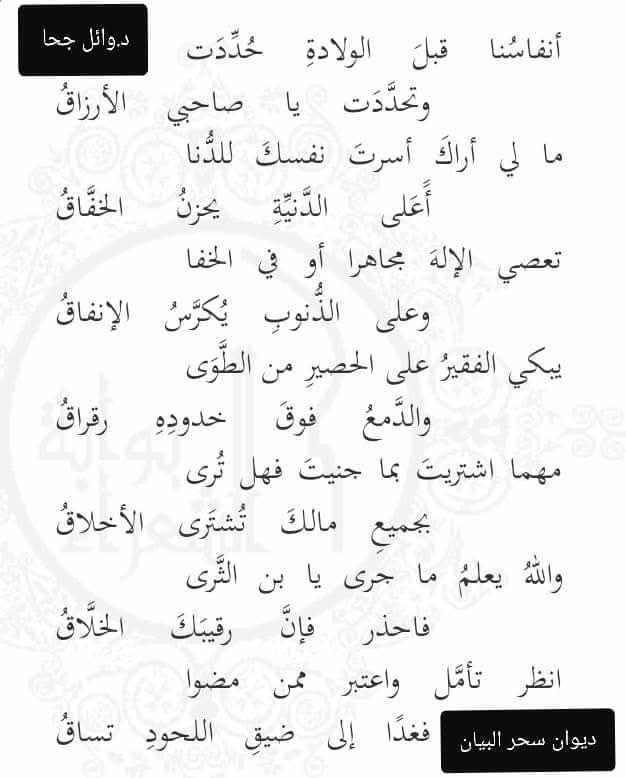 د.وائل جحا
أنفاسُنا قبلَ الولادةِ حُدِّدَت
وتحدَّدَت يا صاحبي الأرزاقُ
ما لي أراكَ أسرتَ نفسكَ للدُّنا
أَعَلى الدَّنيِّةِ يحزنُ الخفَّاقُ
تعصي الإلهَ مجاهرا أو في الخفا
وعلى الذُّنوبِ يُكرَّسُ الإنفاقُ
يبكي الفقيرُ على الحصيرِ من الطَّوَى
والدَّمعُ فوقَ خدودِهِ رقراقُ
مهما اشتريتَ بما جنيتَ فهل تُرى
بجميعِ مالكَ تُشتَرى الأخلاقُ
واللهُ يعلمُ ما جرى يا بن الثَّرى
فاحذر فإنَّ رقيبَكَ الخلَّاقُ
انظر تأمَّل واعتبر ممن مضوا
فغدًا إلى ضيقِ اللحودِ تساقُ
ديوان سحر البيان